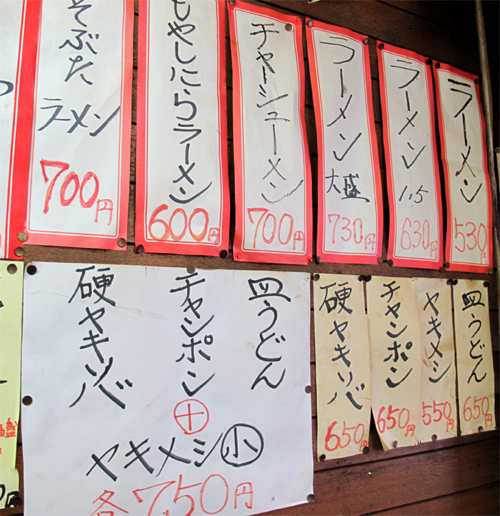 ラーメン
530円
ラーメン
1.5
630円
ラーメン
大盛
730円
チャーシューメン
700円
もやしにらラーメン
600円
そぶた
ラーメン
700円
皿うどん
650円
ヤキメシ
550円
チャンポン
650円
硬ヤキソバ
650円
皿うどん
チャンポン
硬ヤキソバ
+
ヤキメシ小
各750円